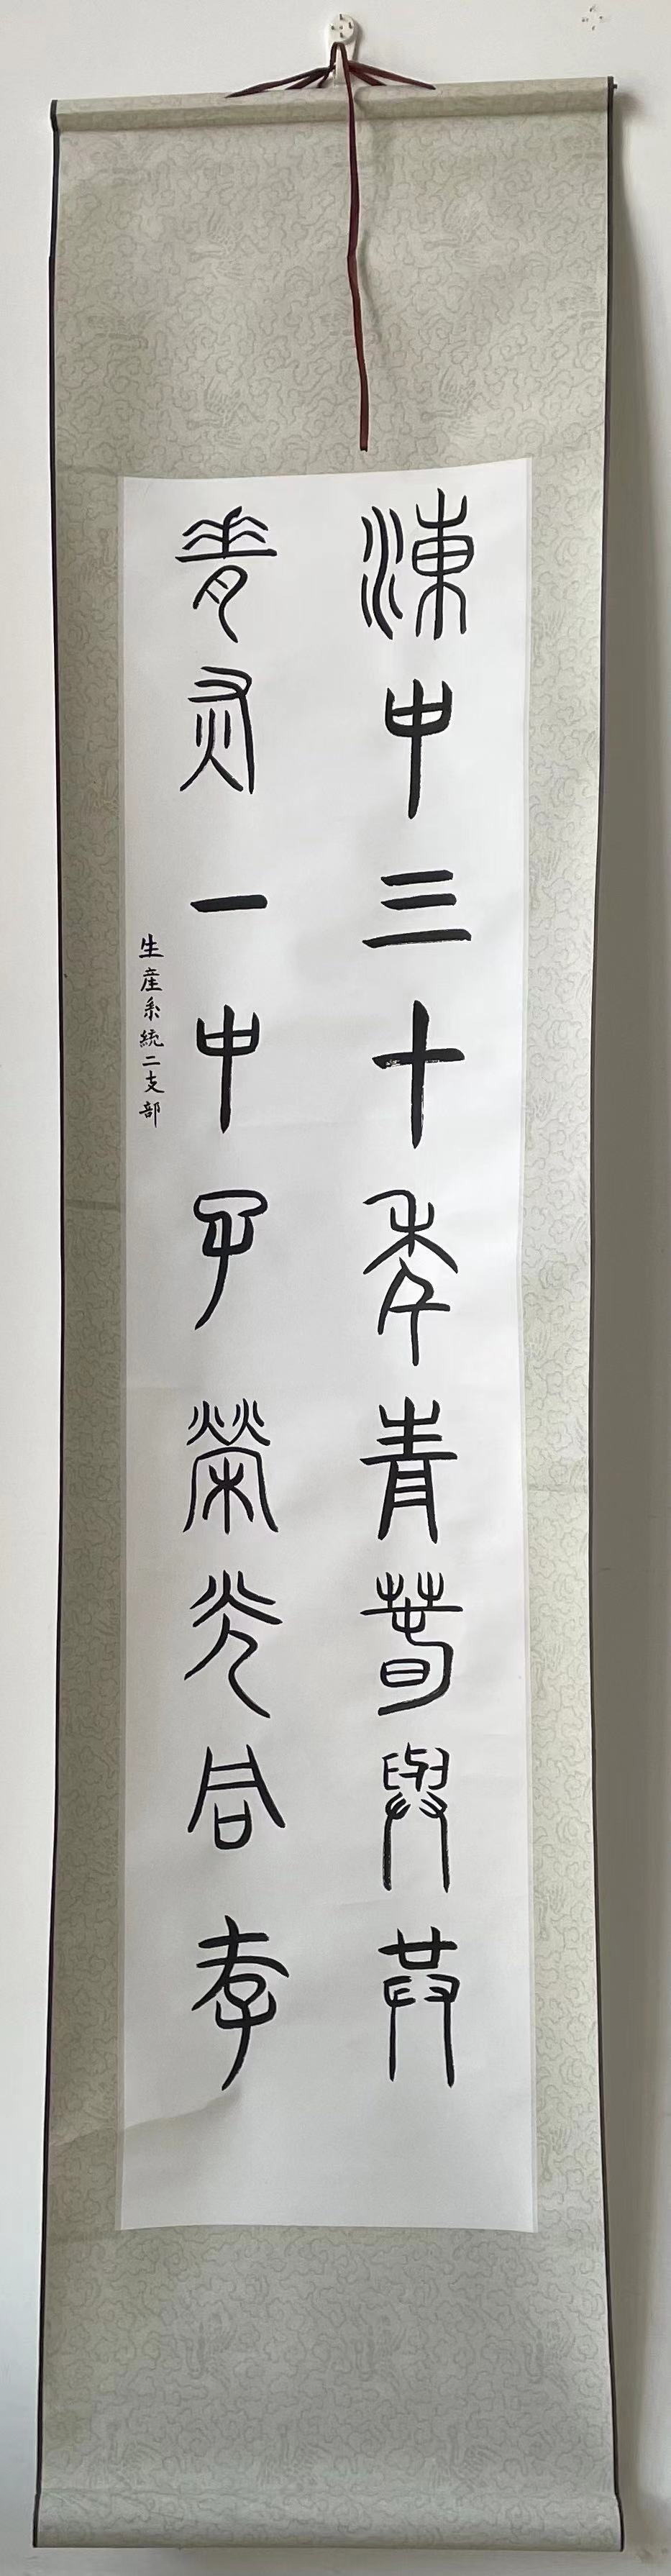 凍甲三十年青春與共
脊灰一甲子榮光同享
生産系統二支部